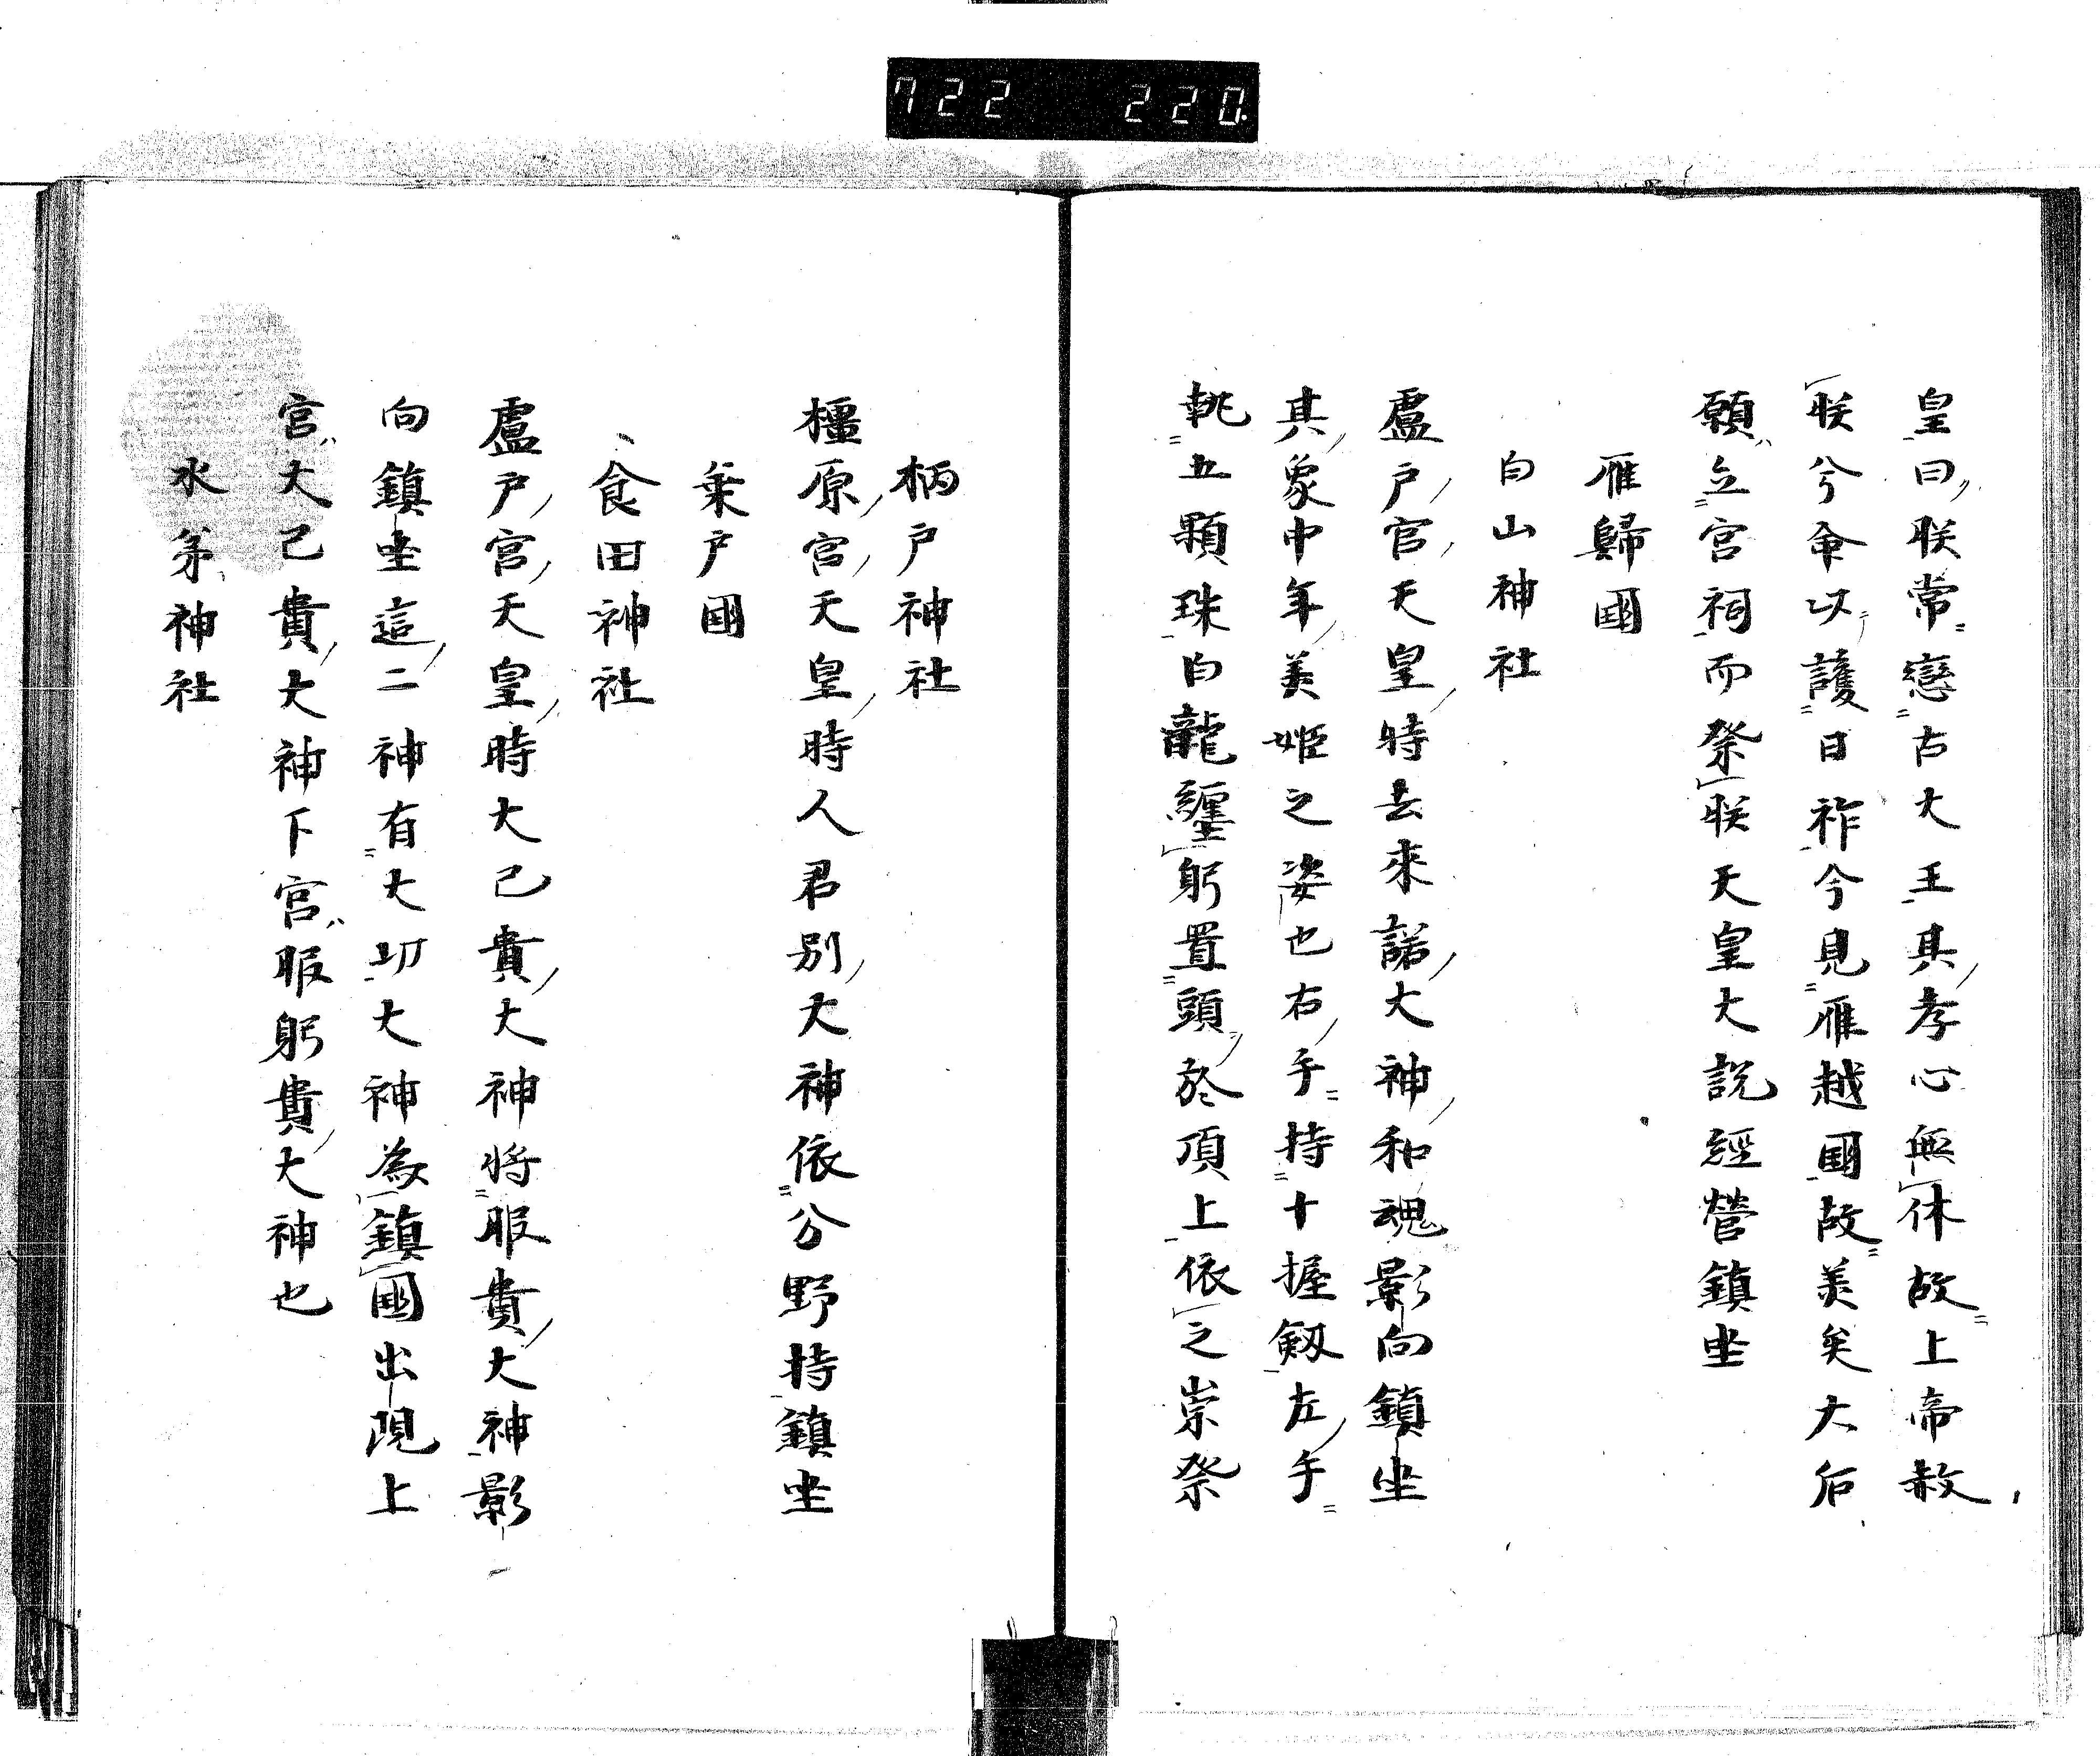 722 220.
皇曰朕常戀古大王其孝心無休故上帝赦
朕兮命以護日祚今見雁越國故美矣大后
願立宮祠而祭朕天皇大説經營鎮坐
雁歸國
白山神社
盧戸宮天皇時去來諾大神和魂影向鎮坐
其象中年美姫之姿也右手持十握劔左手
執五顆珠白龍纏躬置頭於頂上依之崇祭
柄戸神社
橿原宮天皇時人君別大神依分野持鎮坐
乗戸國
食田神社
盧戸宮天皇時大己貴大神將服貴大神影
向鎮坐這二神有大功大神為鎮國出現上
宮大己貴大神下宮服躬貴大神也
水弟神社